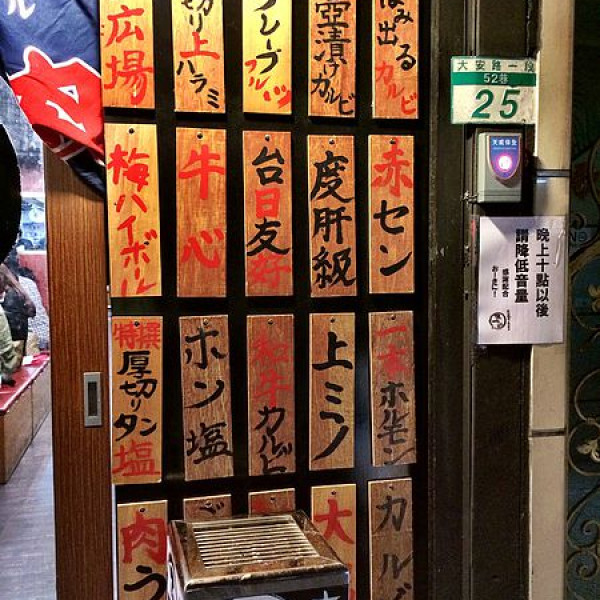 ル
肉
広場
切り上ハラミ
グレープフルーツ
壺漬けカルビ
はみ出るカルビ
梅ハイボール
牛心
台日友好
度肝級
赤セン
特撰厚切りタン塩
ホン塩
和牛カルビ
上ミノ
一本ホルモン
肉う
大
カルビ
大安路一段
52巷
25
天威保全
晚上十點以後
請降低音量
感謝配合
おーきに!